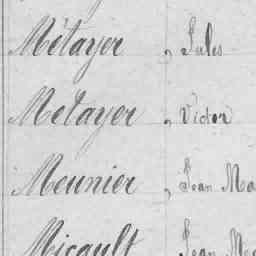 Métayer, Jules
Métayer, Victor
Meunier, Jean Ma
Micault Jean Ma